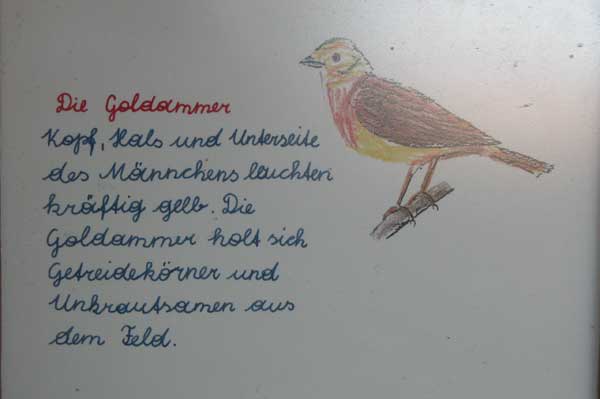 Die Goldammer
Kopf, Hals und Unterseite
des Männchens leuchten
kräftig gelb. Die
Goldammer holt sich
Getreidekörner und
Unkrautsamen aus
dem Feld.